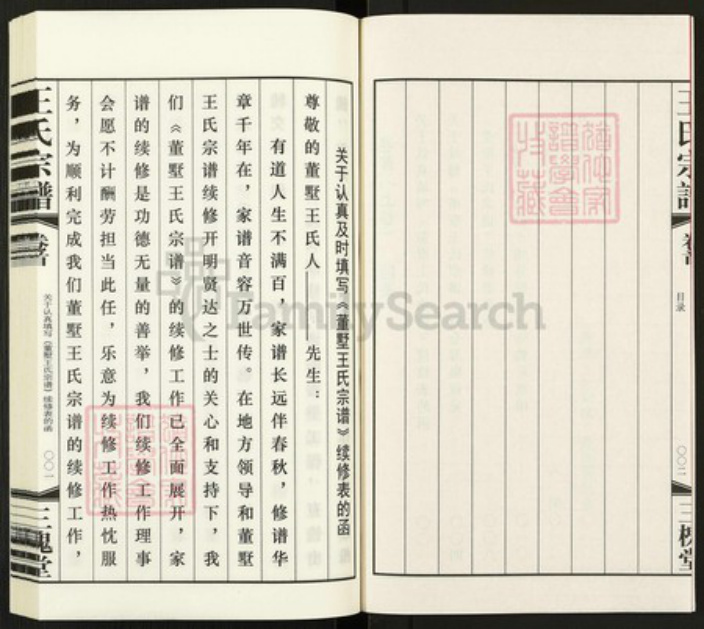 王氏宗谱
目录
〇〇二
三槐堂
关于认真及时填写《董墅王氏宗谱》续修表的函
尊敬的董墅王氏人——先生：
有道人生不满百，家谱长远伴春秋，修谱华
章千年在，家谱音容万世传。在地方领导和董墅
王氏宗谱续修开明贤达之士的关心和支持下，我
们《董墅王氏宗谱》的续修工作已全面展开，家
谱的续修是功德无量的善举，我们续修工作理事
会愿不计酬劳担当此任，乐意为续修工作热忱服
务，为顺利完成我们董墅王氏宗谱的续修工作，
王氏宗谱
卷首
关于认真填写《董墅王氏宗谱》续修表的函
〇〇一
三槐堂
FamilySearch